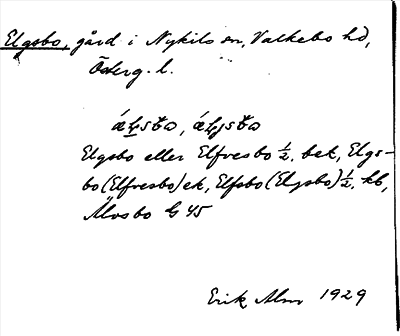 Elgsbo, gård i Nykils sn, Valkebo hd,
Österg. l.
Elgsbo eller Elfvesbo ½. bek, Elgs-
bo (Elfvesbo) ek, Elfsbo (Elgsbo) ½. kb,
Älvsbo G 45
Erik Alm 1929